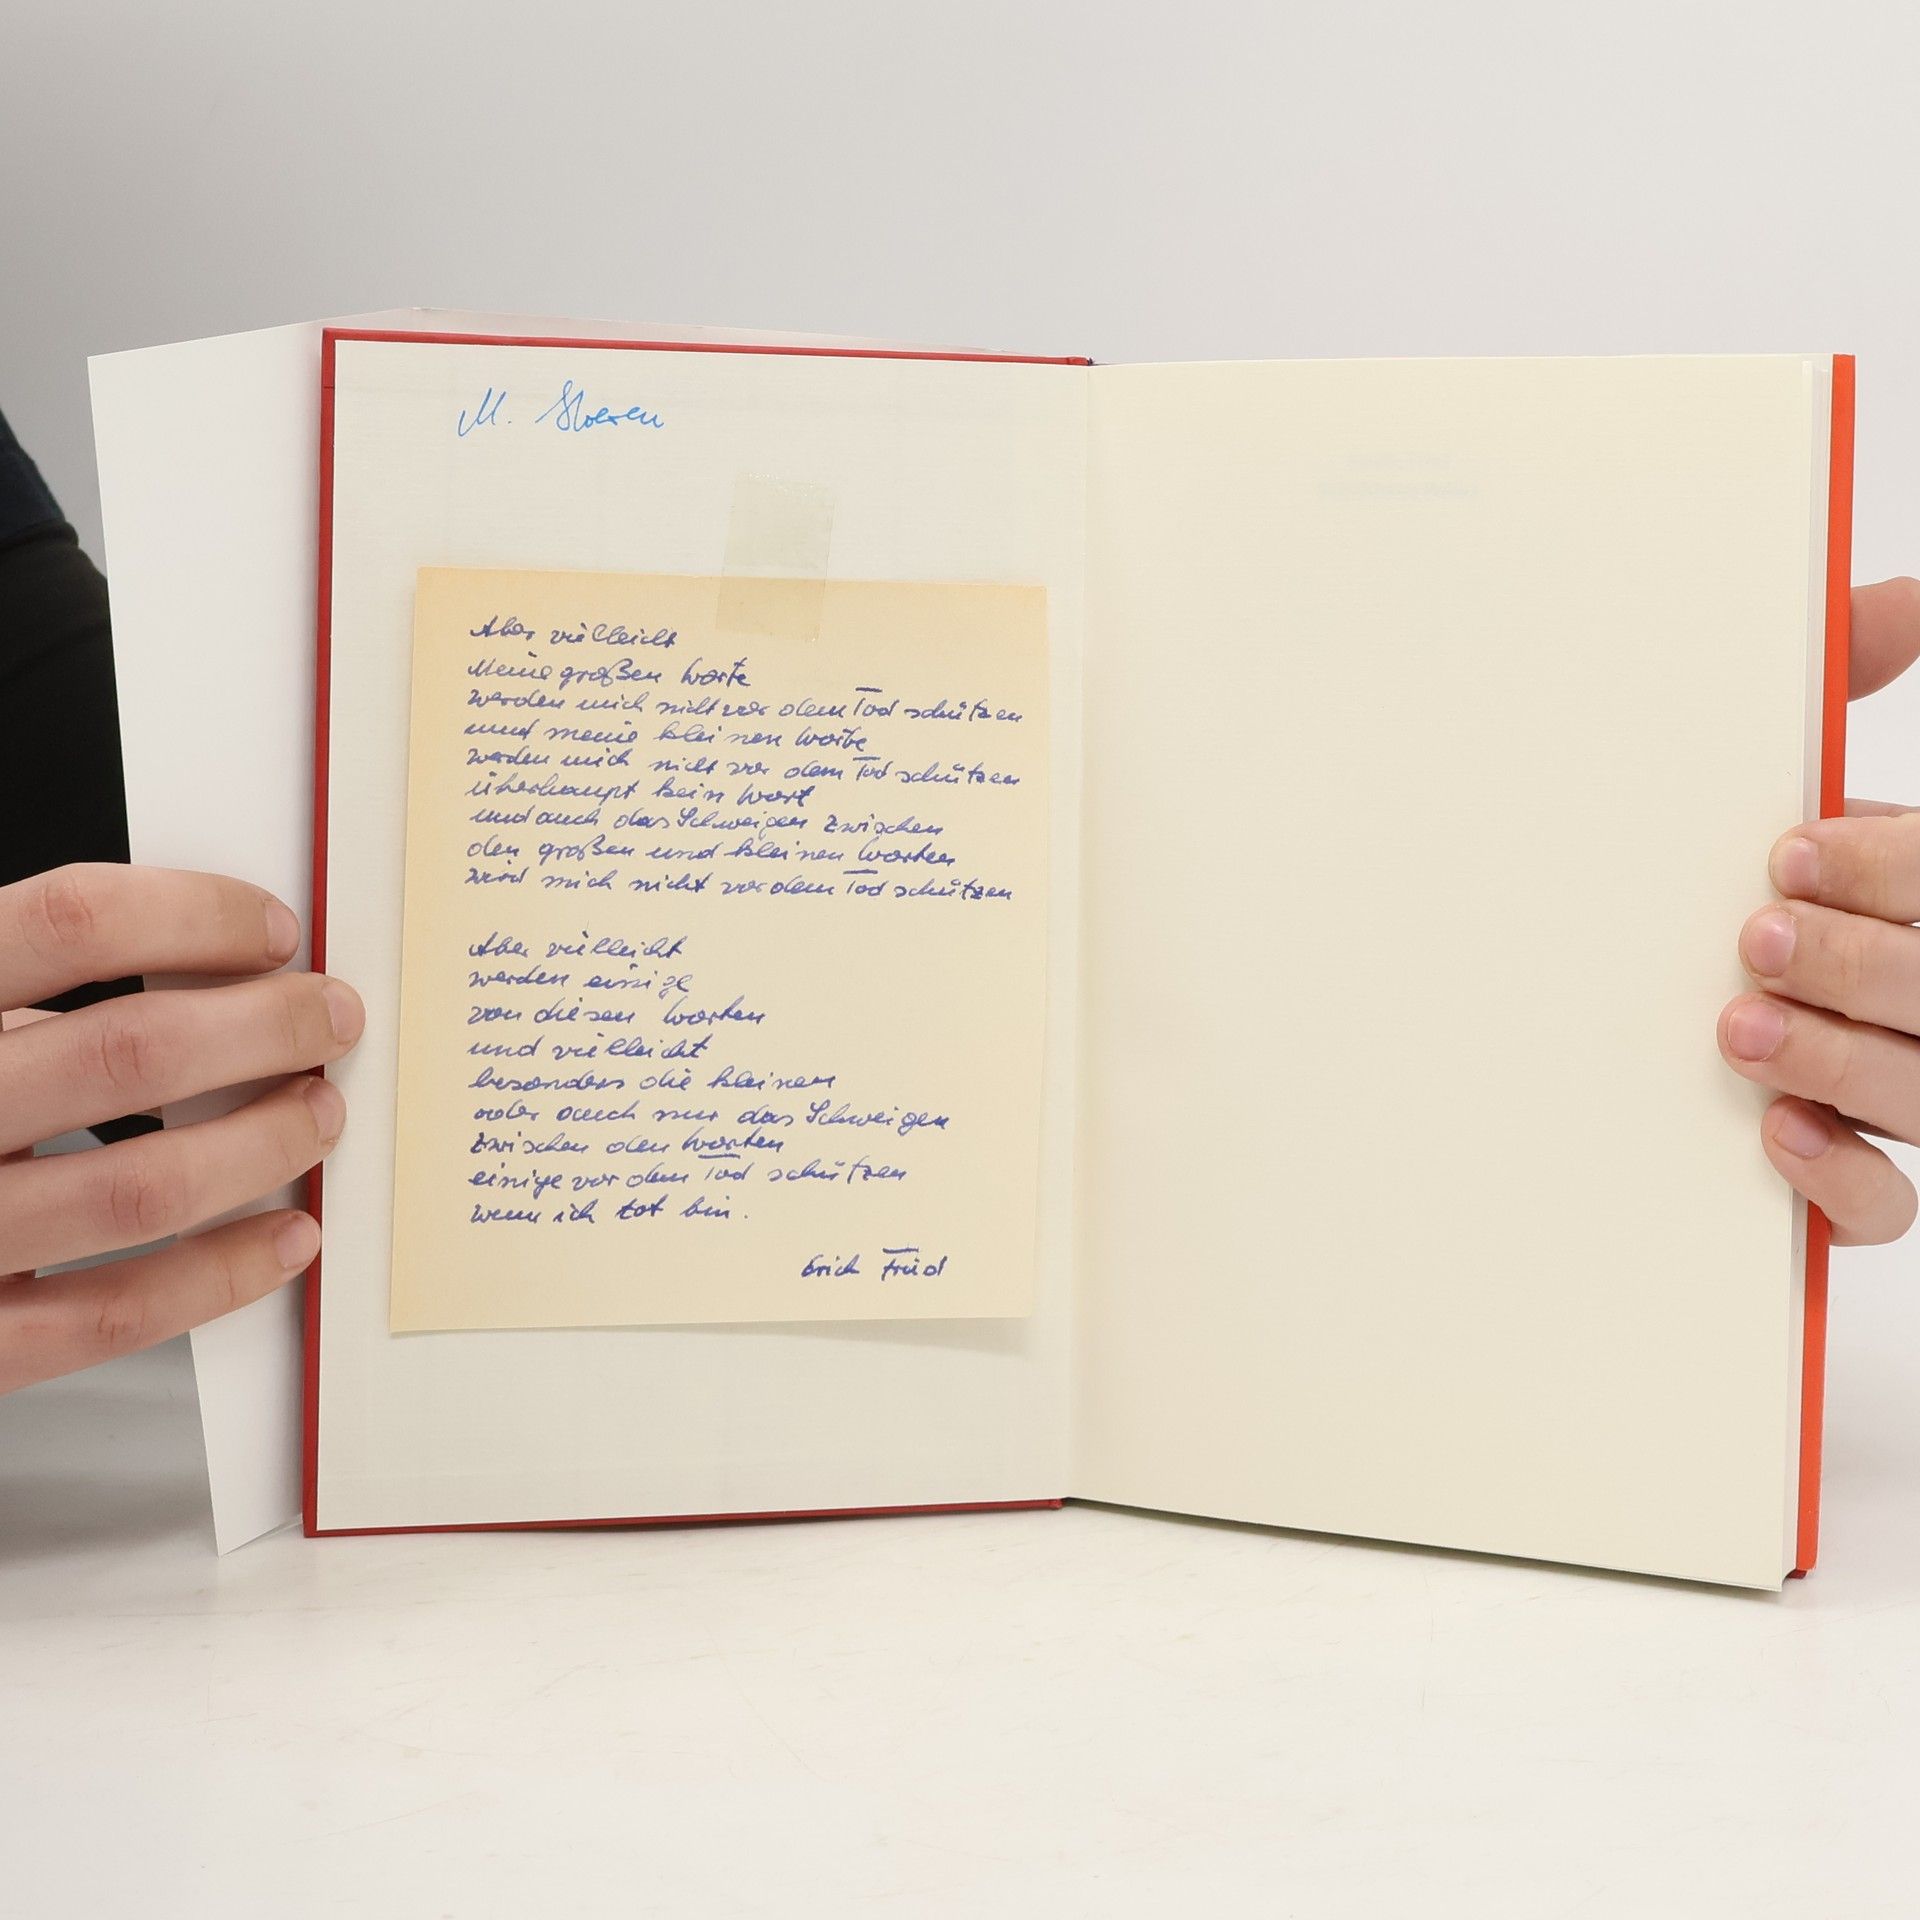 M. Storen
Aber vielleicht
Meine großen Worte
werden mich nicht vor dem Tod schützen
und meine kleinen Worte
werden mich nicht vor dem Tod schützen
überhaupt kein Wort
und auch das Schweigen zwischen
den großen und kleinen Worten
wird mich nicht vor dem Tod schützen
Aber vielleicht
werden einige
von diesen Worten
und vielleicht
besonders die kleinen
oder auch nur das Schweigen
zwischen den Worten
einige vor dem Tod schützen
wenn ich tot bin.
Erich Fried